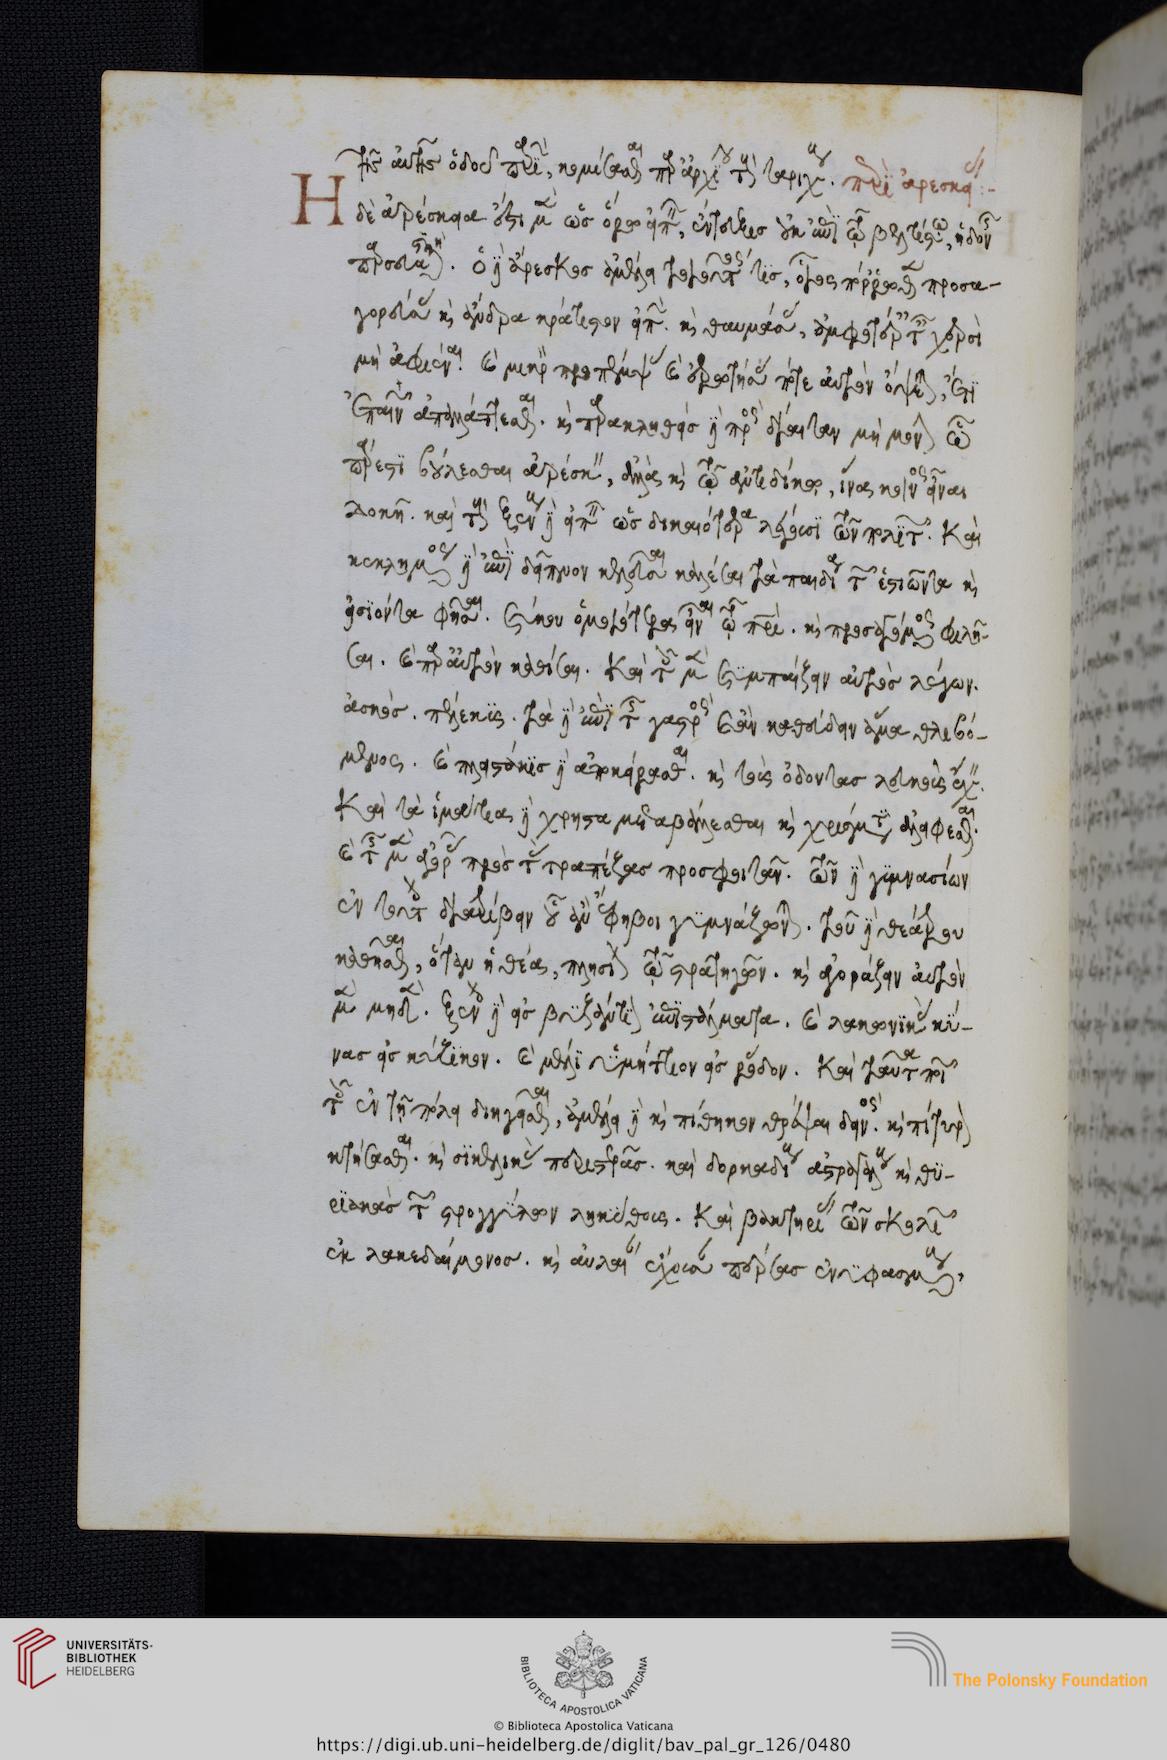 τῆς αὐτῆς ὁδοῦ περιιὼν κομίσασθαι παρ' Ἀρχίου τοὺς ταρίχους. περὶ ἀρεσκείας
Ἡ δὲ ἀρέσκεια ἐστὶ μὲν ὡς ὅρῳ εἰπεῖν, ἔντευξις οὐκ ἐπὶ τῷ βελτίστῳ, ἡδονῆς
παρασκευαστική. ὁ δὲ ἄρεσκος ἀμέλει τοιοῦτός τις, οἷος πόρρωθεν προσα-
γορεῦσαι καὶ ἄνδρα κράτιστον εἰπεῖν. καὶ θαυμάσας, ἀμφοτέραις ταῖς χερσὶ
μὴ ἀφιέναι. καὶ μικρὸν προπέμψας καὶ ἐρωτήσας πότε αὐτὸν ὄψεται, ἔτι
ἐπαινῶν ἀπαλλάττεσθαι. καὶ παρακληθεὶς δὲ πρὸς δίαιταν μὴ μόνον ᾧ
πάρεστι βούλεσθαι ἀρέσκειν, ἀλλὰ καὶ τῷ ἀντιδίκῳ, ἵνα κοινὸς εἶναι
δοκῇ. καὶ τοὺς ξένους δὲ εἰπεῖν ὡς δικαιότερα λέγουσι τῶν πολιτῶν. Καὶ
κεκλημένος δὲ ἐπὶ δεῖπνον κελεῦσαι καλέσαι τὰ παιδία τὸν ἑστιῶντα καὶ
εἰσιόντα φῆσαι. σύκου ὁμοιότερα εἶναι τῷ πατρί. καὶ προσαγόμενος φιλῆ-
σαι. καὶ παρ' αὐτὸν καθίσαι. Καὶ τοῖς μὲν συμπαίζειν αὐτὸς λέγων.
ἀσκός. πέλεκυς. τὰ δὲ ἐπὶ τῆς γαστρὸς ἐᾶν καθεύδειν ἅμα θλιβό-
μενος. καὶ πλειστάκις δὲ ἀποκείρασθαι. καὶ τοὺς ὀδόντας λευκοὺς ἔχειν.
Καὶ τὰ ἱμάτια δὲ χρηστὰ μεταβάλλεσθαι καὶ χρίσματι ἀλείφεσθαι.
καὶ τῆς μὲν ἀγορᾶς πρὸς τὰς τραπέζας προσφοιτᾶν. τῶν δὲ γυμνασίων
ἐν τούτοις διατρίβειν οὗ ἂν ἔφηβοι γυμνάζωνται. τοῦ δὲ θεάτρου
καθῆσθαι, ὅταν ἡ θέα, πλησίον τῶν στρατηγῶν. καὶ ἀγοράζειν αὐτὸν
μὲν μηδέν. ξένοις δὲ εἰς βυζάντιον ἐπιστάλματα. καὶ λακωνικὰς κύ-
νας εἰς κύζικον. καὶ μέλι ὑμήττιον εἰς ῥόδον. Καὶ ταῦτα ποιῶν
τοῖς ἐν τῇ πόλει διηγεῖσθαι, ἀμέλει δὲ καὶ πίθηκον θρέψαι δεινός. καὶ τίτυρον
κτήσασθαι. καὶ σικελικὰς περιστεράς. καὶ δορκαδείους ἀστραγάλους καὶ θυ-
ριακὰς τῶν στρογγύλων ληκύθους. Καὶ βακτηρίας τῶν σκολιῶν
ἐκ λακεδαίμονος. καὶ αὐλαίαν ἔχουσαν πέρσας ἐνυφασμένους,
UNIVERSITÄTS-
BIBLIOTHEK
HEIDELBERG
BIBLIOTECA APOSTOLICA VATICANA
The Polonsky Foundation
© Biblioteca Apostolica Vaticana
https://digi.ub.uni-heidelberg.de/diglit/bav_pal_gr_126/0480